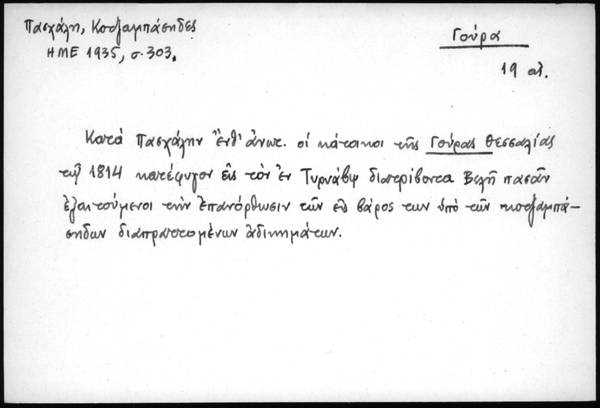 Πασχάλη, Κοτζαμπάσηδες
ΗΜΕ 1935, σ. 303.
Γούρα
19 αἰ.
Κατὰ Πασχάλην ἔνθ' ἀνωτ. οἱ κάτοικοι τῆς Γούρας Θεσσαλίας
τῷ 1814 κατέφυγον εἰς τὸν ἐν Τυρνάβῳ διατρίβοντα Βελῆ πασᾶν
ἐξαιτούμενοι τὴν ἐπανόρθωσιν τῶν εἰς βάρος των ὑπὸ τῶν κοτζαμπά-
σηδων διαπραττομένων ἀδικημάτων.